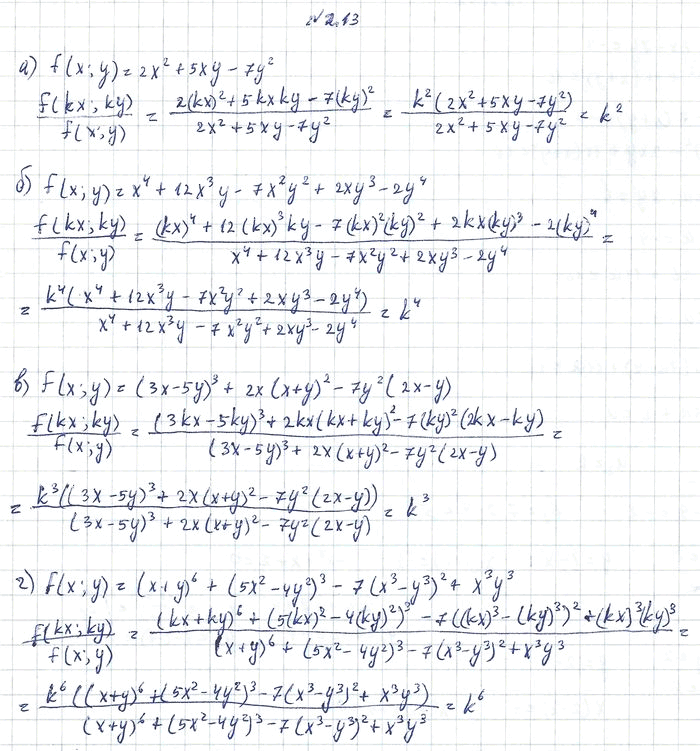 №2.13
а) f(x;y) = 2x² + 5xy − 7y²
f(kx;ky)/f(x;y) = (2(kx)² + 5kxky − 7(ky)²)/(2x² + 5xy − 7y²) = k²(2x² + 5xy − 7y²)/(2x² + 5xy − 7y²) = k²
б) f(x;y) = x⁴ + 12x³y − 7x²y² + 2xy³ − 2y⁴
f(kx;ky)/f(x;y) = ((kx)⁴ + 12(kx)³ky − 7(kx)²(ky)² + 2kx(ky)³ − 2(ky)⁴)/(x⁴ + 12x³y − 7x²y² + 2xy³ − 2y⁴) =
= k⁴(x⁴ + 12x³y − 7x²y² + 2xy³ − 2y⁴)/(x⁴ + 12x³y − 7x²y² + 2xy³ − 2y⁴) = k⁴
в) f(x;y) = (3x−5y)³ + 2x(x+y)² − 7y²(2x−y)
f(kx;ky)/f(x;y) = ((3kx−5ky)³ + 2kx(kx+ky)² − 7(ky)²(2kx−ky))/((3x−5y)³ + 2x(x+y)² − 7y²(2x−y)) =
= k³((3x−5y)³ + 2x(x+y)² − 7y²(2x−y))/((3x−5y)³ + 2x(x+y)² − 7y²(2x−y)) = k³
г) f(x;y) = (x+y)⁶ + (5x²−4y²)³ − 7(x³−y³)² + x³y³
f(kx;ky)/f(x;y) = ((kx+ky)⁶ + (5(kx)²−4(ky)²)³ − 7((kx)³−(ky)³)² + (kx)³(ky)³)/((x+y)⁶ + (5x²−4y²)³ − 7(x³−y³)² + x³y³) =
= k⁶((x+y)⁶ + (5x²−4y²)³ − 7(x³−y³)² + x³y³)/((x+y)⁶ + (5x²−4y²)³ − 7(x³−y³)² + x³y³) = k⁶